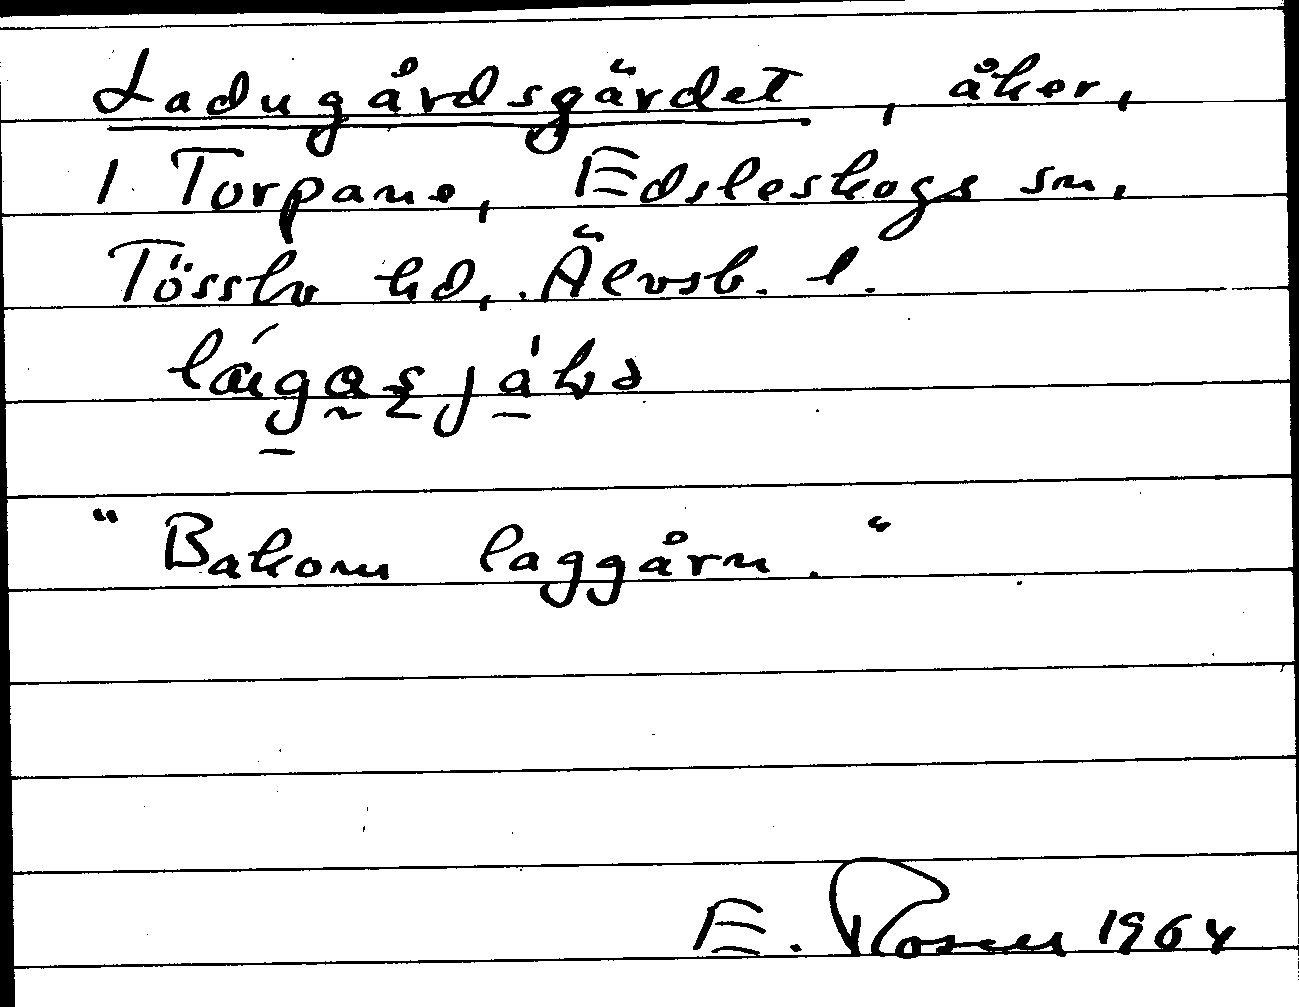 Ladugårdsgärdet, åker,
1 Torpane, Edsleskogs sn,
Tösslv hd, Älvsb. l.
"Bakom laggårn."
E. Rosell 1964